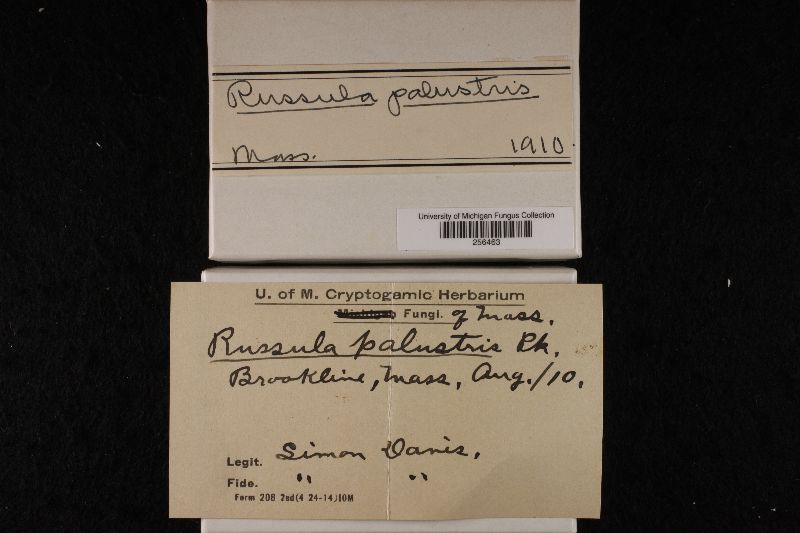 Russula palustris
Mass. 1910.
University of Michigan Fungus Collection
256463
U. of M. Cryptogamic Herbarium
Michigan Fungi. of Mass.
Russula palustris Pk.
Brookline, Mass, Aug./10.
Legit. Simon Davis.
Fide. " "
Form 208 2ed(4 24-14)10M